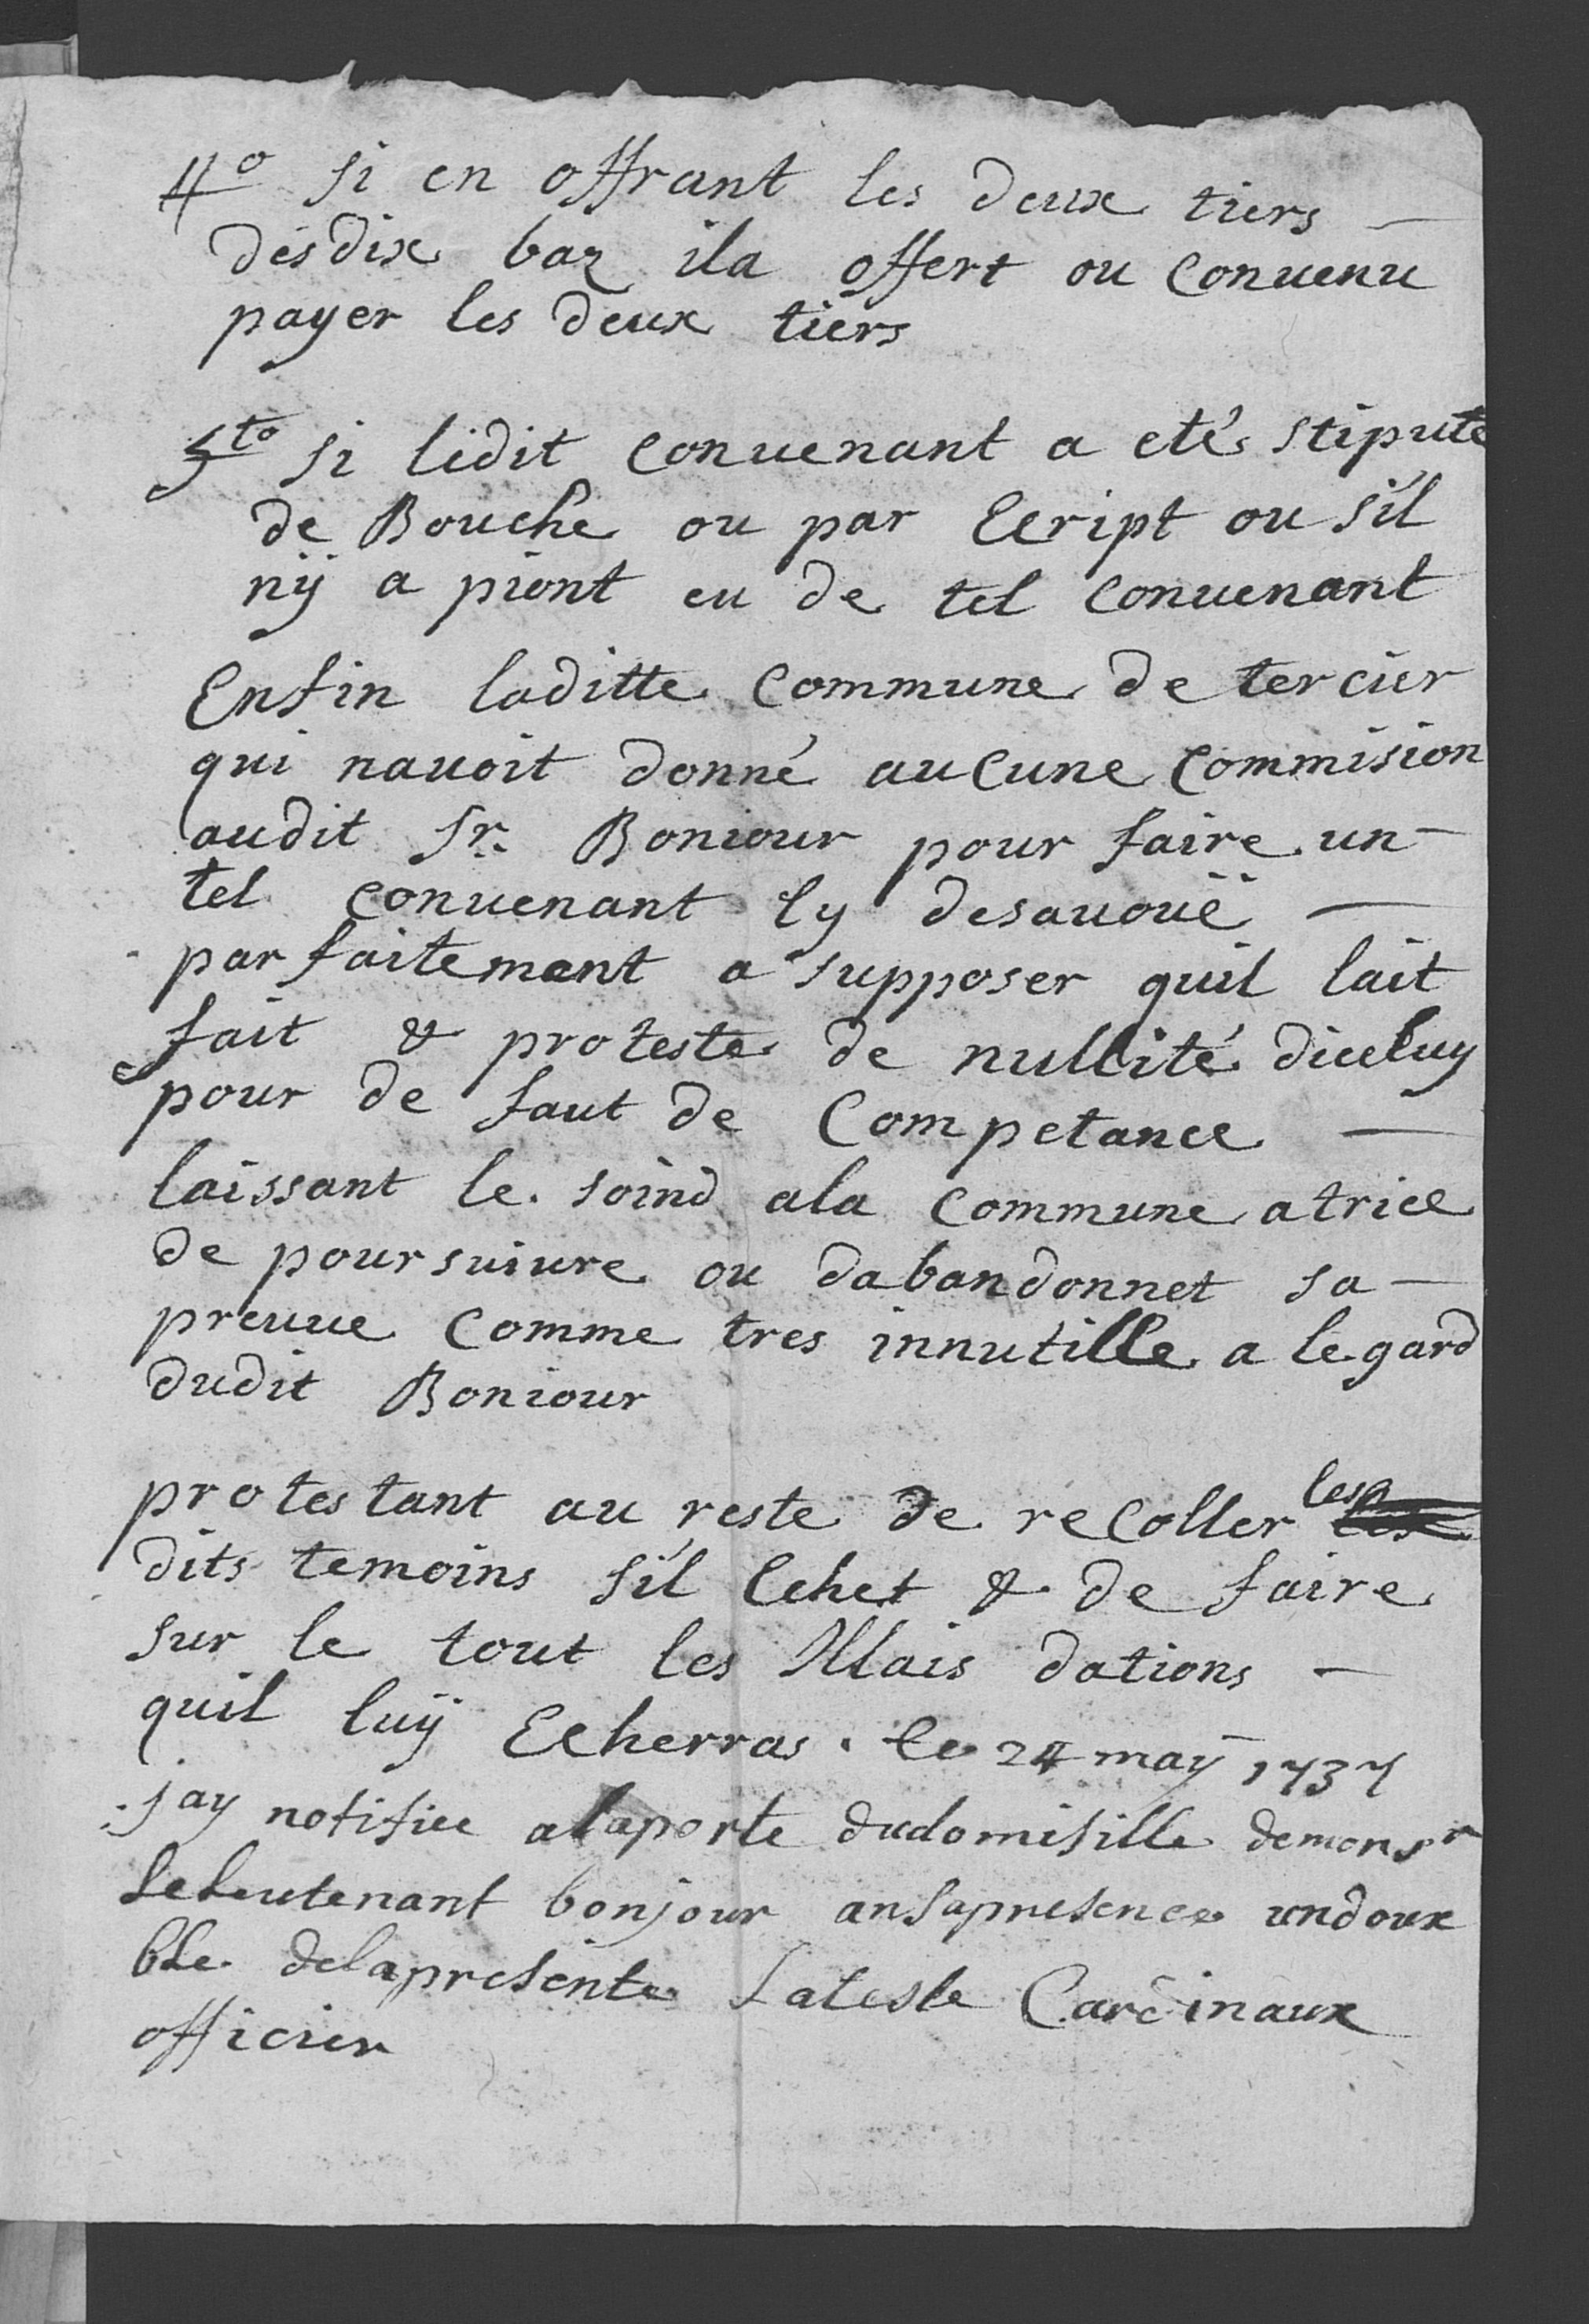 4o si en offrant les deux tiers —
des dix baz ila offert ou convenu
payer les deux tiers
5to si ledit convenant a eté stipule
de Bouche ou par Ecript ou s'il
nÿ a piont eu de tel convenant
Enfin laditte Commune de tercier
qui navoit donné aucune Commision
audit Sr. Boniour pour faire un —
tel convenant ly desavouë —
parfaitemant a supposer quil lait
fait & proteste de nullité diceluy
pour de faut de Competance —
laissant le soind ala commune atrice
de poursuivre ou dabandonnet sa —
preuve comme tres innutille a legard
dudit Boniour
protestant au reste de recoller les
dits temoins s'il Echet & de faire
sur le tout les Allais dations —
quil luÿ Echerras. le 24 maÿ 1737
jay notifiee alaporte dudomisille demonsr
Leleutenant bonjour ansapresence undoux
ble delapresente Lateste Cardinaux
officier